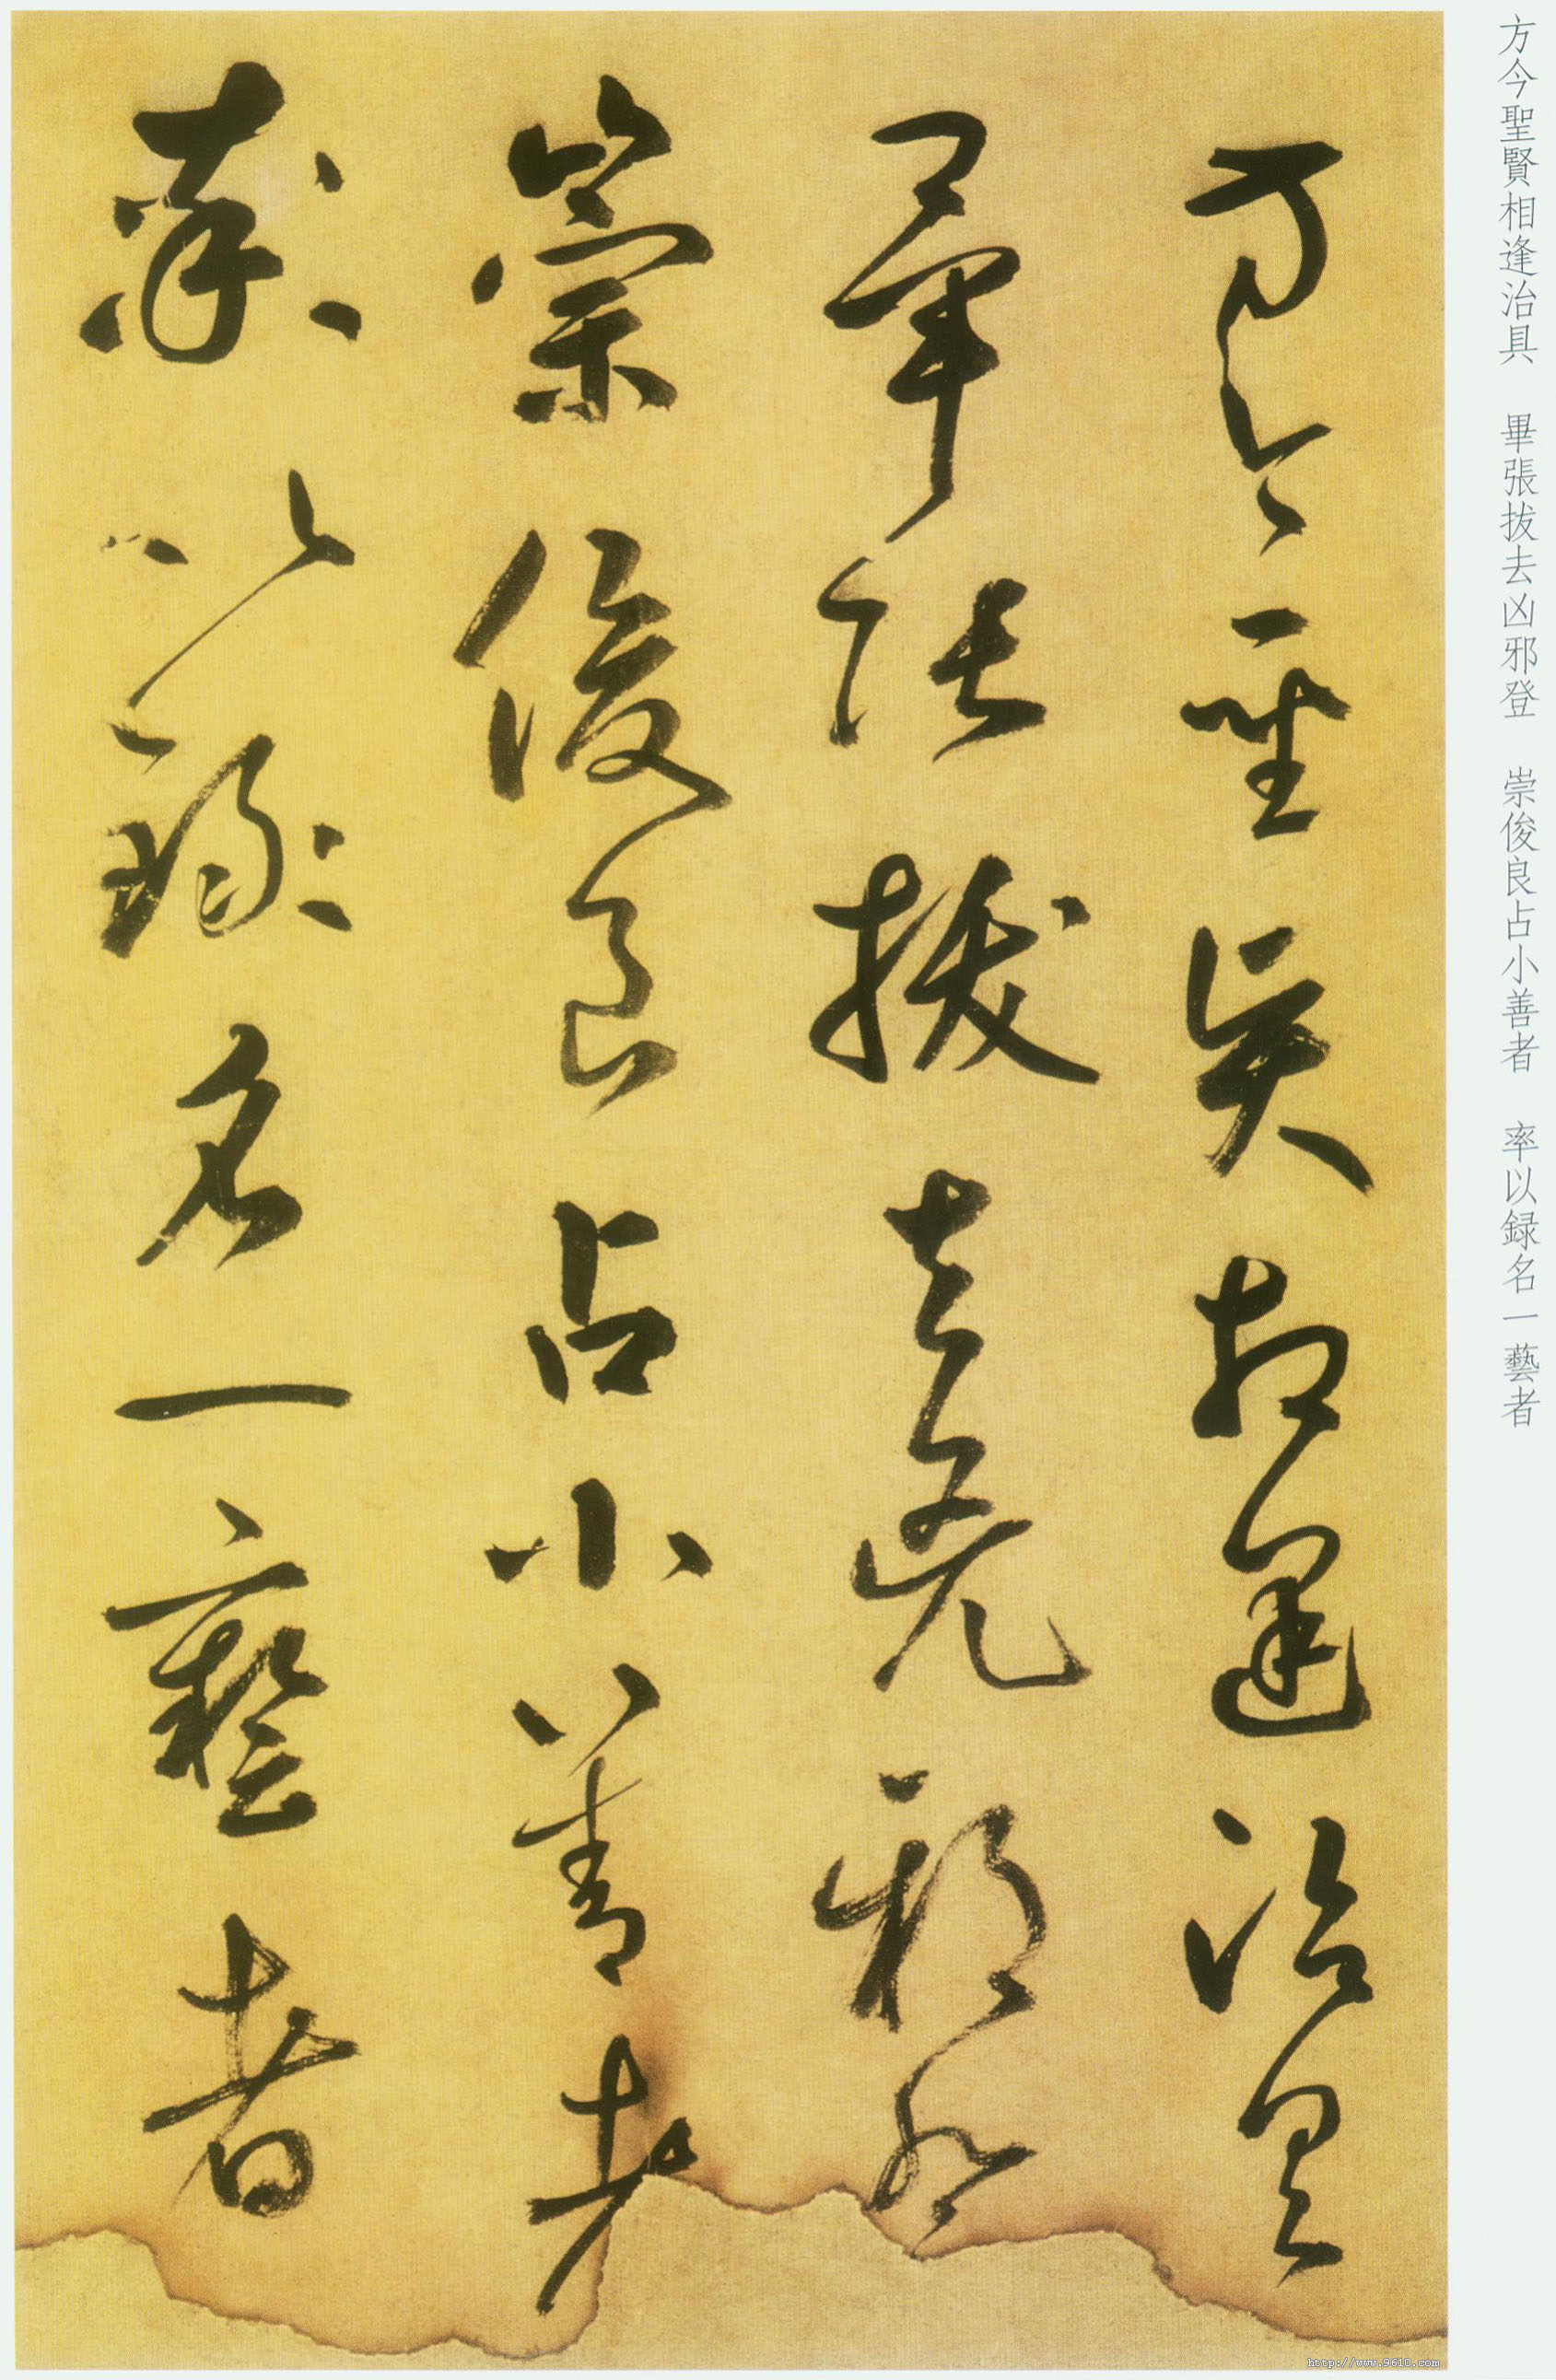 方今聖賢相逢治具
畢張拔去兇邪登
崇俊良占小善者
率以録名一藝者
方今聖賢相逢治具 畢張拔去凶邪登 崇俊良占小善者 率以録名一藝者
http://www.9610.com